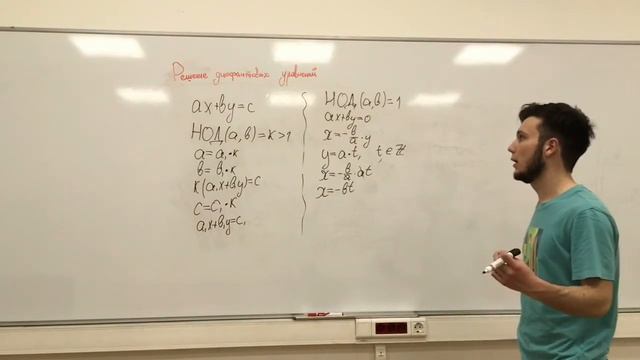 Решение диофантовых уравнений
ax+by=c
НОД(a,b)=k>1
a=a₁·k
b=b₁·k
k(a₁x+b₁y)=c
c=c₁·k
a₁x+b₁y=c₁
НОД(a,b)=1
ax+by=0
x=-b/a·y
y=a·t, t∈ℤ
x=-b/a·at
x=-bt